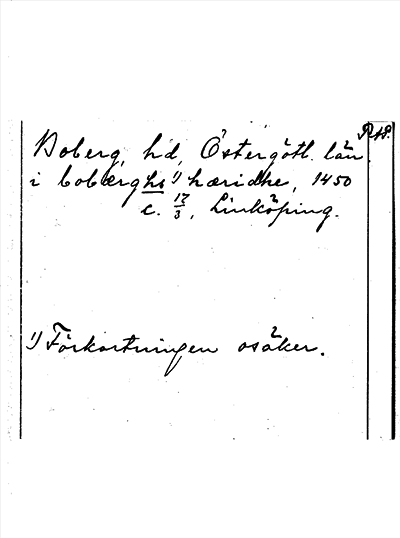 Boberg, hd, Östergötl. län.
i bobærghs ¹⁾ hæridhe, 1450
c. 17/3, Linköping.
¹⁾ Förkortningen osäker.